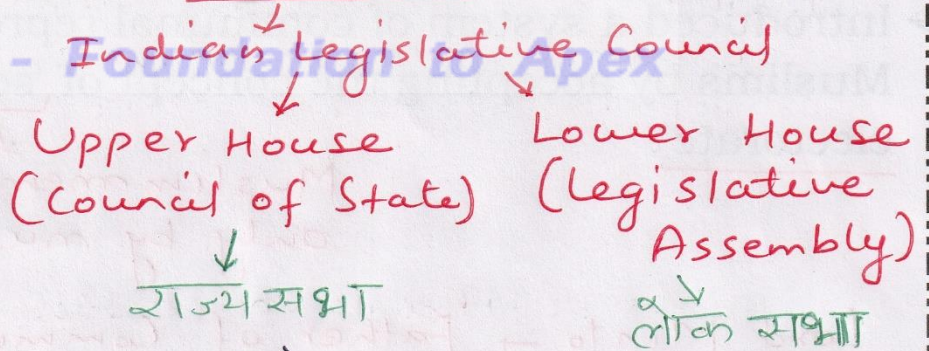 Indian Legislative Council
- Foundation to Apex
Upper House
(Council of State)
Lower House
(Legislative
Assembly)
राज्य सभा
लोक सभा